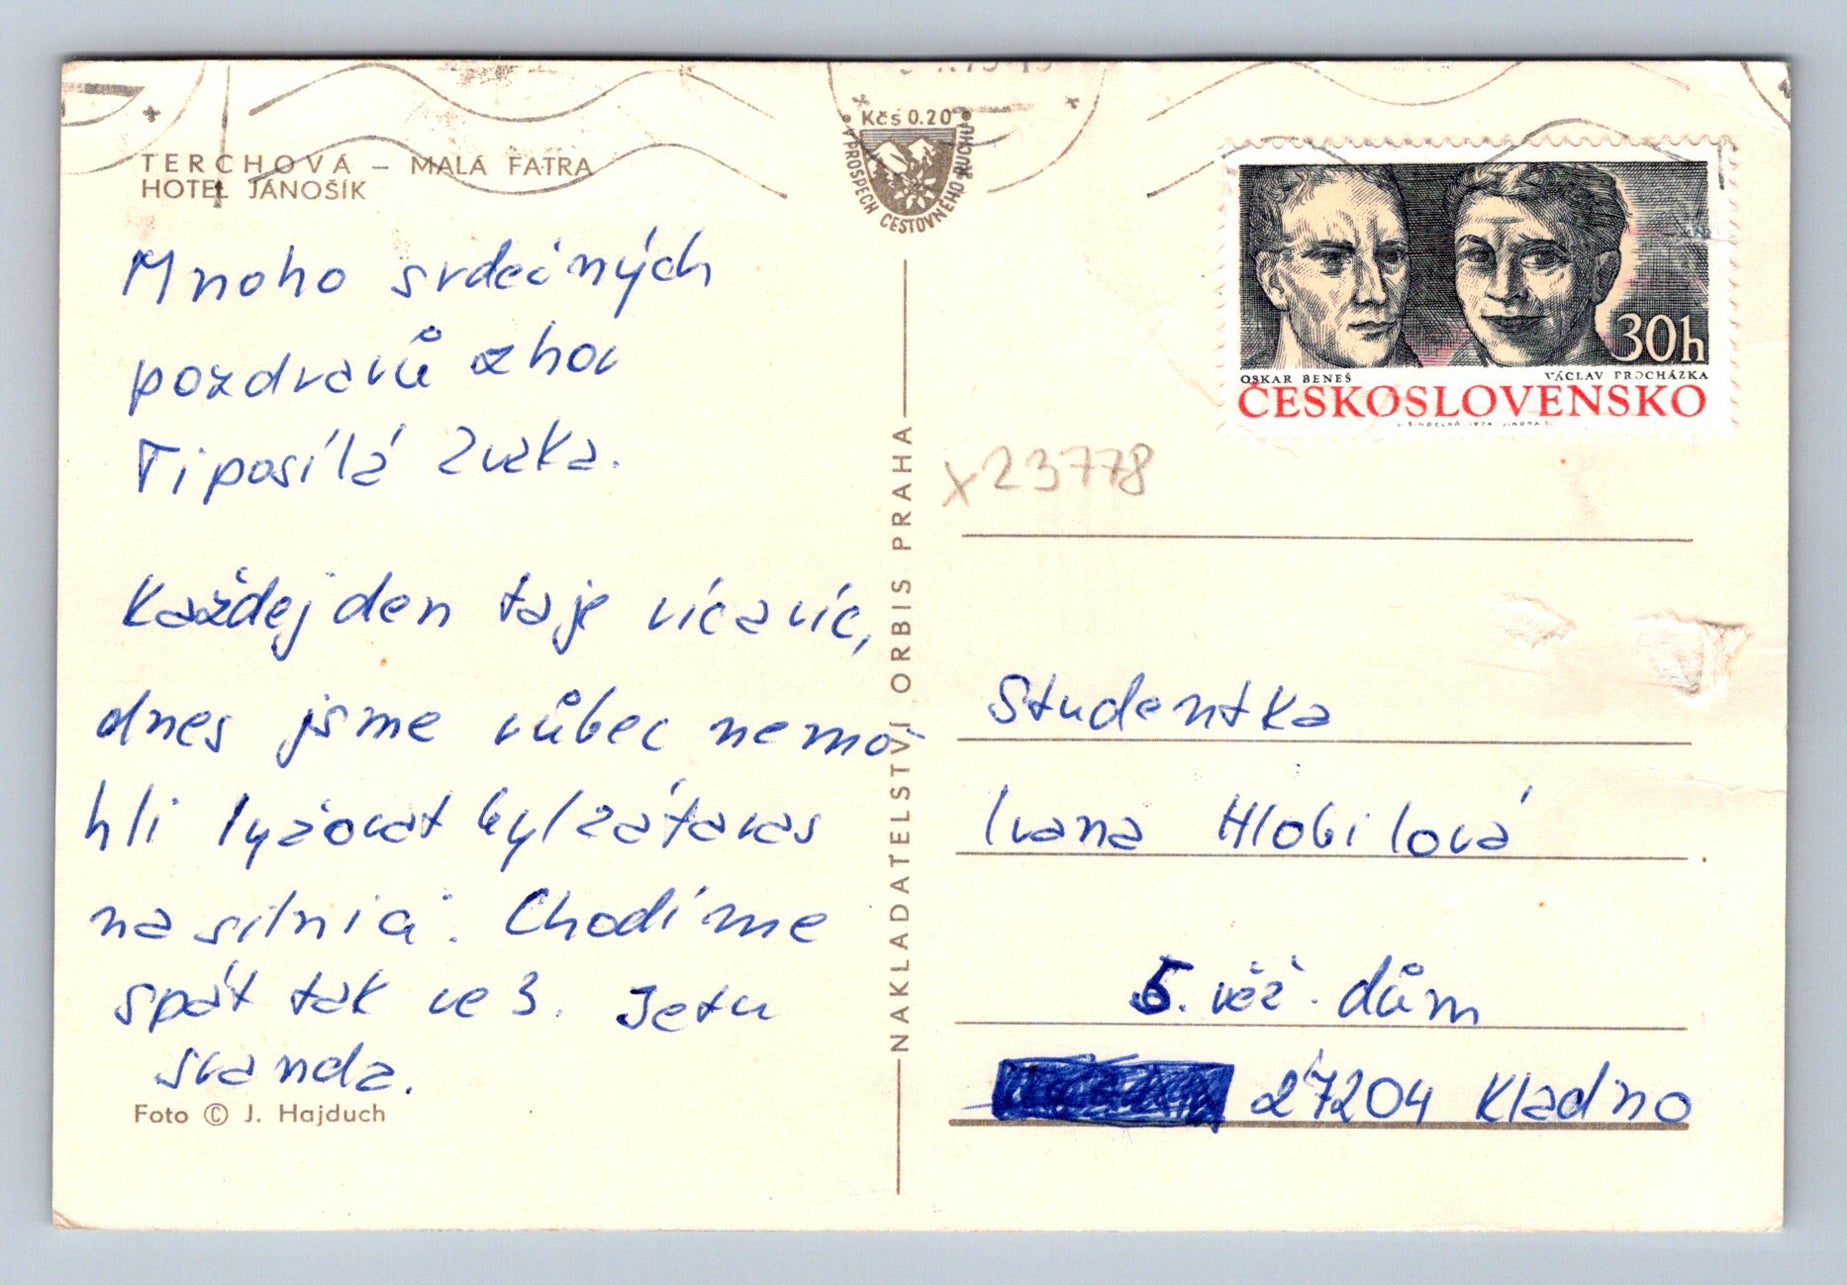 TERCHOVÁ – MALÁ FATRA
HOTEL JÁNOŠÍK
Kčs 0.20
V PROSPĚCH CESTOVNÉHO RUCHU
Mnoho srdečných
pozdravů z hor
Ti posílá Zuzka.
Každej den taje víc a víc,
dnes jsme vůbec nemo-
hli lyžovat byl zátaras
na silnici. Chodíme
spát tak ve 3. Je tu
sranda.
Foto © J. Hajduch
NAKLADATELSTVÍ ORBIS PRAHA
30h
OSKAR BENEŠ VÁCLAV PROCHÁZKA
ČESKOSLOVENSKO
x23778
Studentka
Ivana Hlobilová
5. věž. dům
27204 Kladno